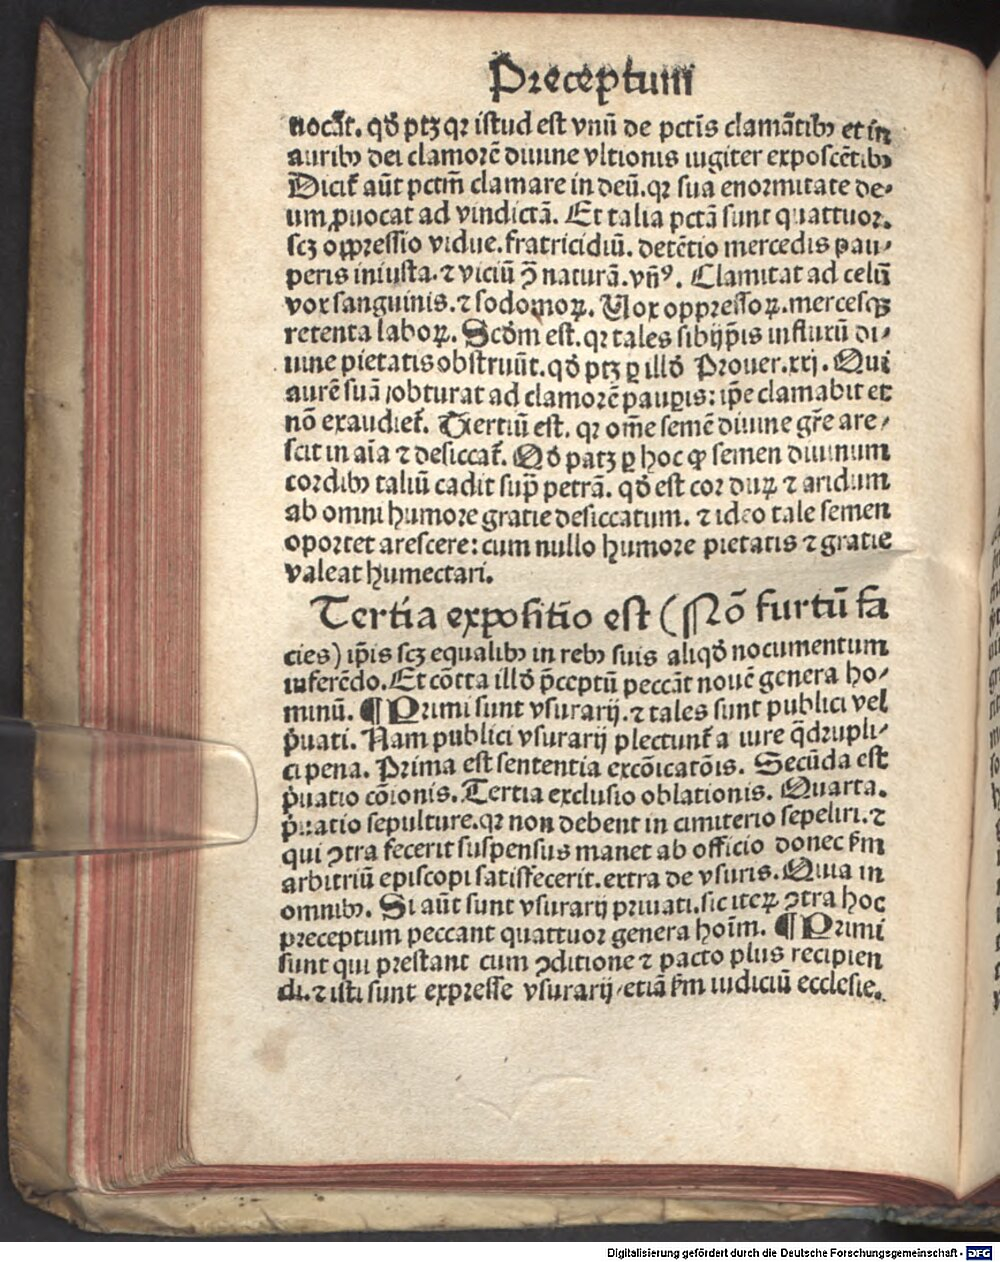 Preceptum
nocãt. qđ ptꝫ qꝛ istud est vnũ de pctis clamãtibꝰ et in
auribꝰ dei clamorẽ diuine vltionis iugiter exposcẽtibꝰ
Dicit̃ aũt pctm̃ clamare in deũ. qꝛ sua enormitate de⸗
um ꝓuocat ad vindictã. Et talia pctã sunt quattuor.
scꝫ oppressio vidue. fratricidiũ. detẽtio mercedis pau⸗
peris iniusta. ⁊ viciũ ↄ̃ naturã. vñꝰ. Clamitat ad celũ
vox sanguinis. ⁊ sodomoꝝ. Uox oppressoꝝ. mercesqꝫ
retenta laboꝝ. Scđm est. qꝛ tales sibijp̃is influxũ di⸗
uine pietatis obstruũt. qđ ptꝫ ꝑ illđ Prouer. xxj. Qui
aurẽ suã obturat ad clamorẽ pauꝑis: ip̃e clamabit et
nõ exaudiet̃. Tertiũ est. qꝛ om̃e semẽ diuine gr̃e are⸗
scit in aĩa ⁊ desiccat̃. Qđ patꝫ ꝑ hoc ꝙ semen diuinum
cordibꝰ taliũ cadit sup̃ petrã. qđ est cor duꝝ ⁊ aridum
ab omni humore gratie desiccatum. ⁊ ideo tale semen
oportet arescere: cum nullo humore pietatis ⁊ gratie
valeat humectari.
Tertia expositio est (Nõ furtũ fa
cies) ip̃is scꝫ equalibꝰ in rebꝰ suis aliqđ nocumentum
inferẽdo. Et cõtra illđ p̃ceptũ peccãt nouẽ genera ho⸗
minũ. ¶ Primi sunt vsurarij. ⁊ tales sunt publici vel
p̃uati. Nam publici vsurarij plectunt̃ a iure q̃drupli⸗
ci pena. Prima est sententia excõicatõis. Secũda est
p̃uatio cõionis. Tertia exclusio oblationis. Quarta.
p̃uatio sepulture. qꝛ non debent in cimiterio sepeliri. ⁊
qui ↄtra fecerit suspensus manet ab officio donec fm̃
arbitriũ episcopi satisfecerit. extra de vsuris. Quia in
omnibꝰ. Si aũt sunt vsurarij priuati. sic iteꝝ ↄtra hoc
preceptum peccant quattuor genera hoĩm. ¶ Primi
sunt qui prestant cum ↄditione ⁊ pacto plus recipien
di. ⁊ isti sunt expresse vsurarij / etiã fm̃ iudiciũ ecclesie.
Digitalisierung gefördert durch die Deutsche Forschungsgemeinschaft - DFG